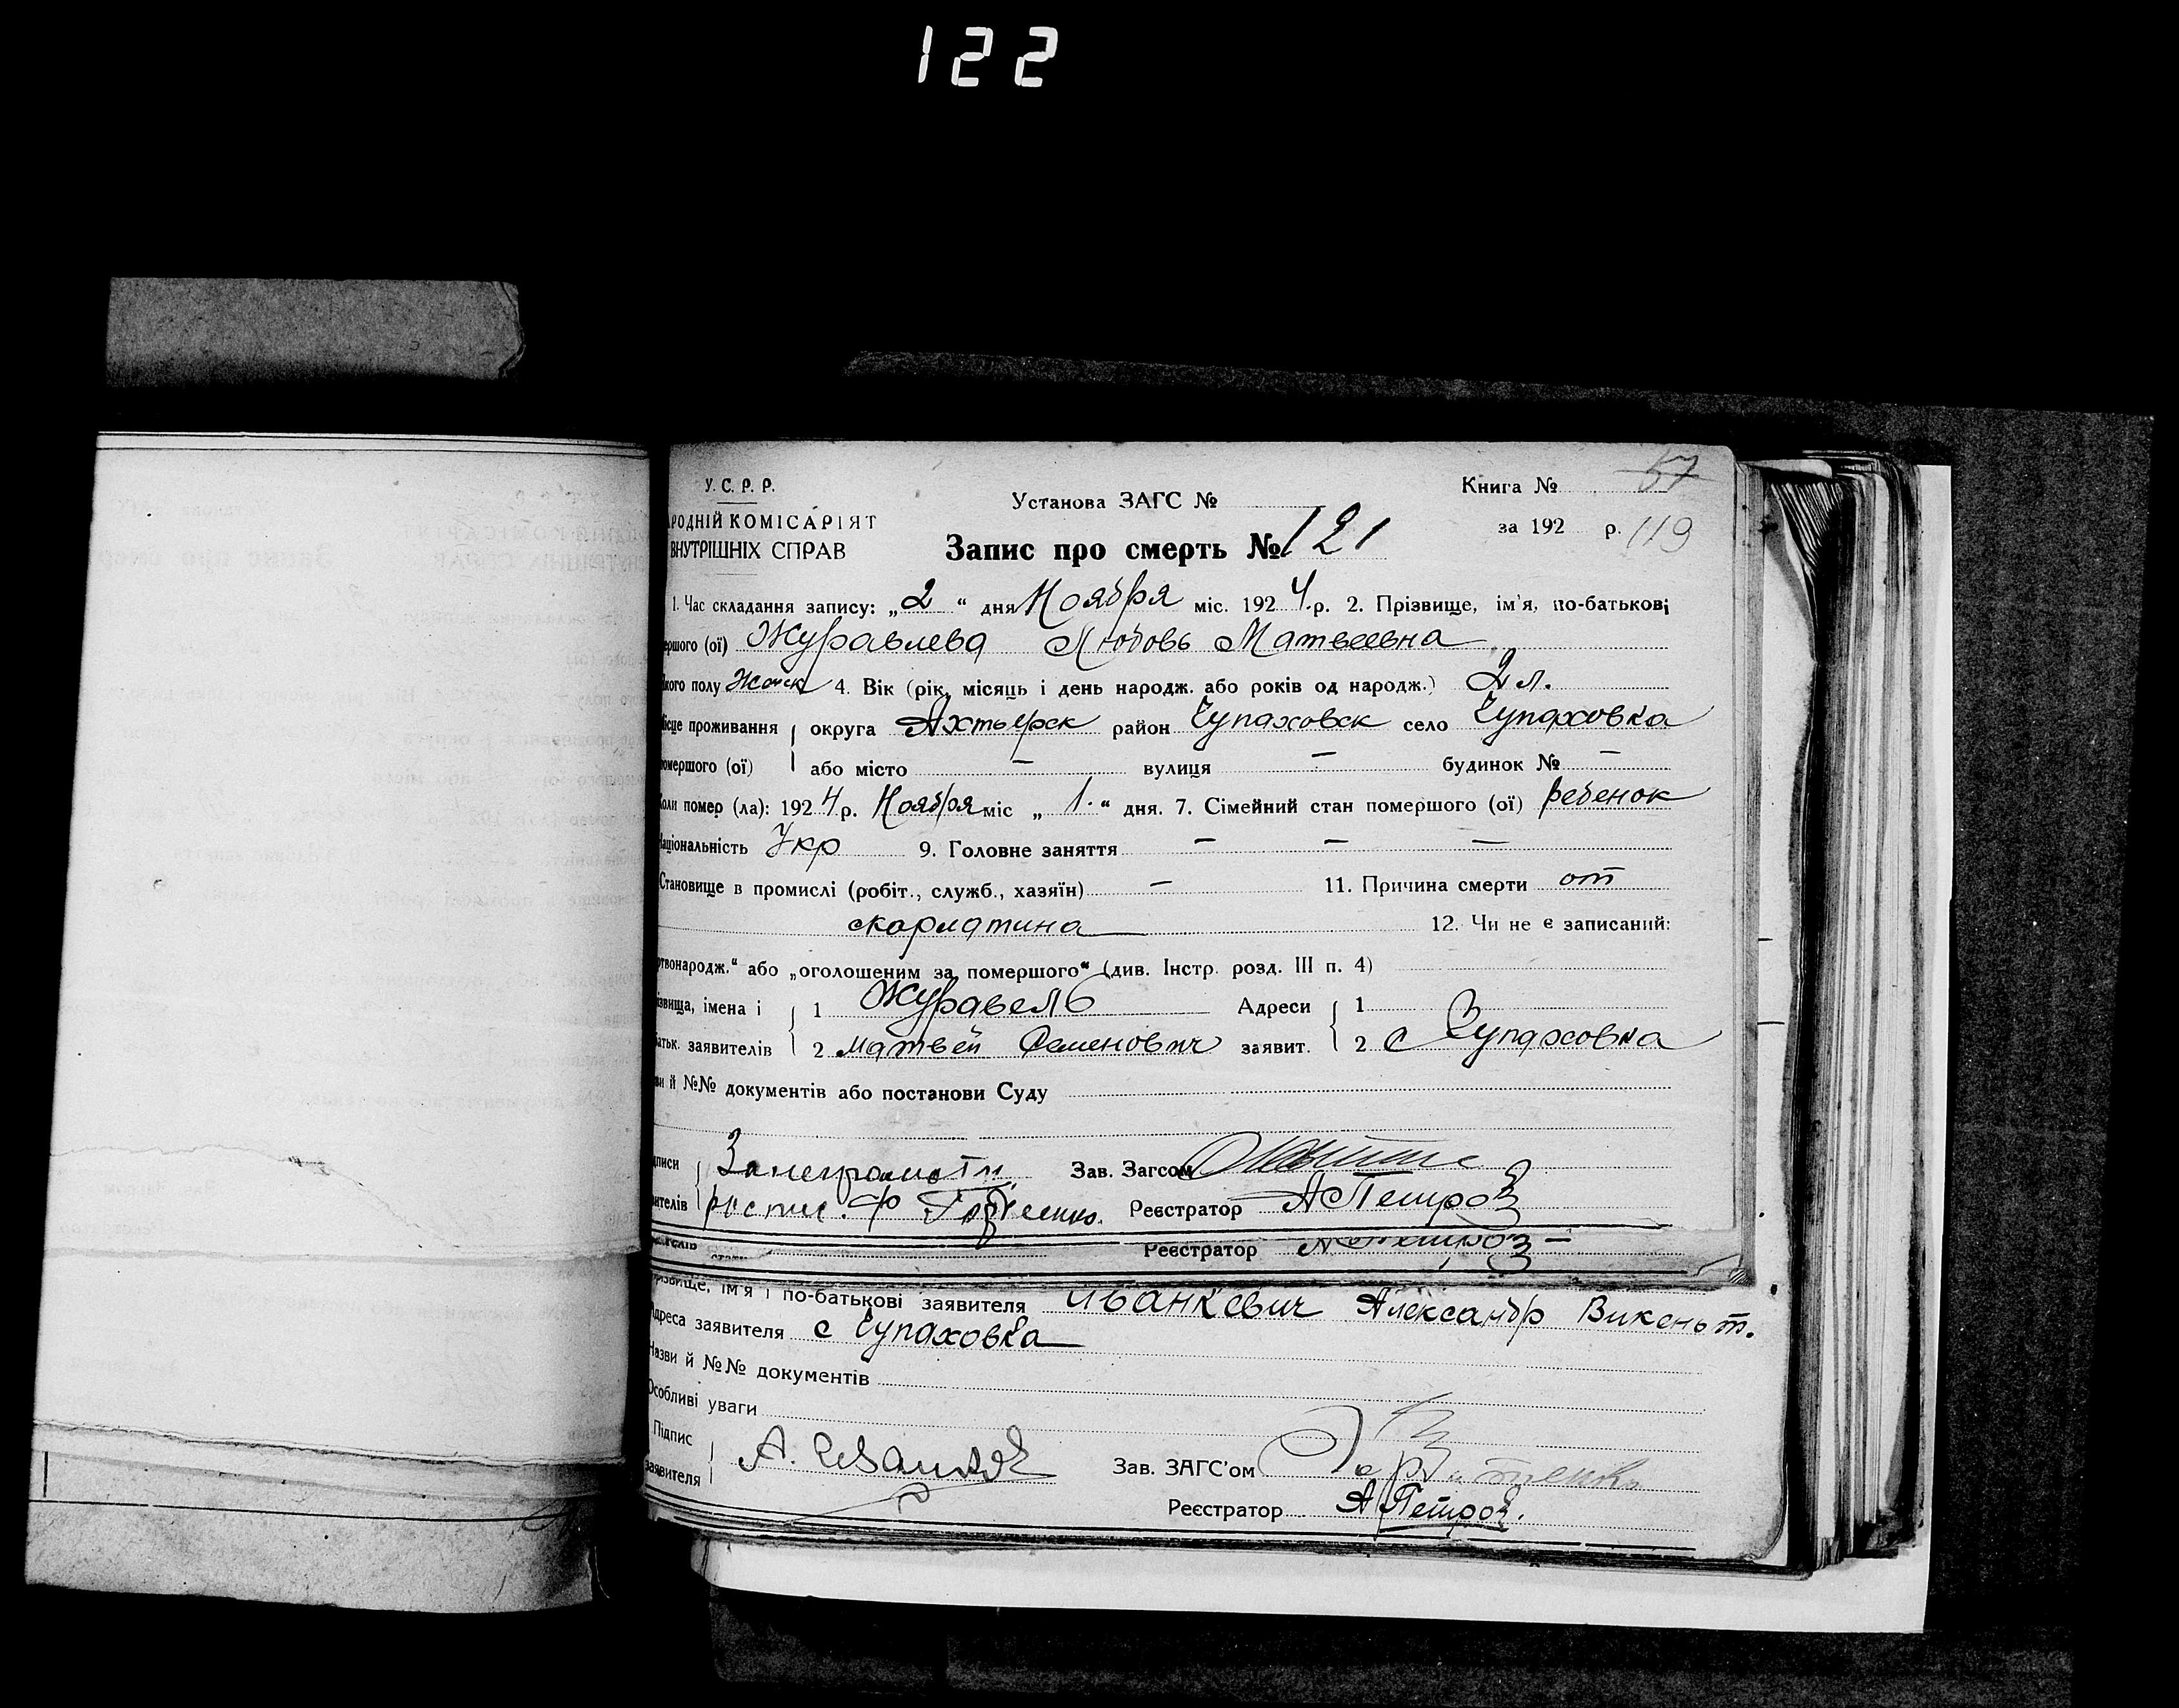 122
У. С. Р. Р.
Установа ЗАГС №
Книга № 57
РОДНІЙ КОМІСАРІЯТ
за 192 р. 119
ВНУТРІШНІХ СПРАВ
Запис про смерть № 121
1. Час складання запису: „2“ дня Ноября міс. 1924 р. 2. Прізвище, ім'я, по-батькові
ершого (ої) Журавлева Любовь Матвеевна
кого полу Женск 4. Вік (рік, місяць і день народж. або років од народж.) 2 л.
ісце проживання округа Ахтырск район Чупаховск село Чупаховка
омершого (ої) або місто — вулиця — будинок № —
Коли помер (ла): 1924 р. Ноября міс „1.“ дня. 7. Сімейний стан помершого (ої) ребенок
Національність Укр 9. Головне заняття — — —
Становище в промислі (робіт., служб., хазяїн) — 11. Причина смерти от
скарлатина 12. Чи не є записаний:
ртвонародж.“ або „оголошеним за помершого“ (див. Інстр. розд. III п. 4)
ізвища, імена і 1 Журавель Адреси 1
батьк. заявителів 2 Матвей Семенович заявит. 2 с Чупаховка
ви й №№ документів або постанови Суду
дписи За неграмотн. Зав. Загсом
вителів роспис. Ф Реєстратор А Петров
Реєстратор А Петров
різвище, ім'я і по-батькові заявителя Иванкевич Александр Викент.
Адреса заявителя с Чупаховка
Назви й №№ документів
Особливі уваги
Підпис
заявителя А. Зав. ЗАГС'ом
Реєстратор А Петров.